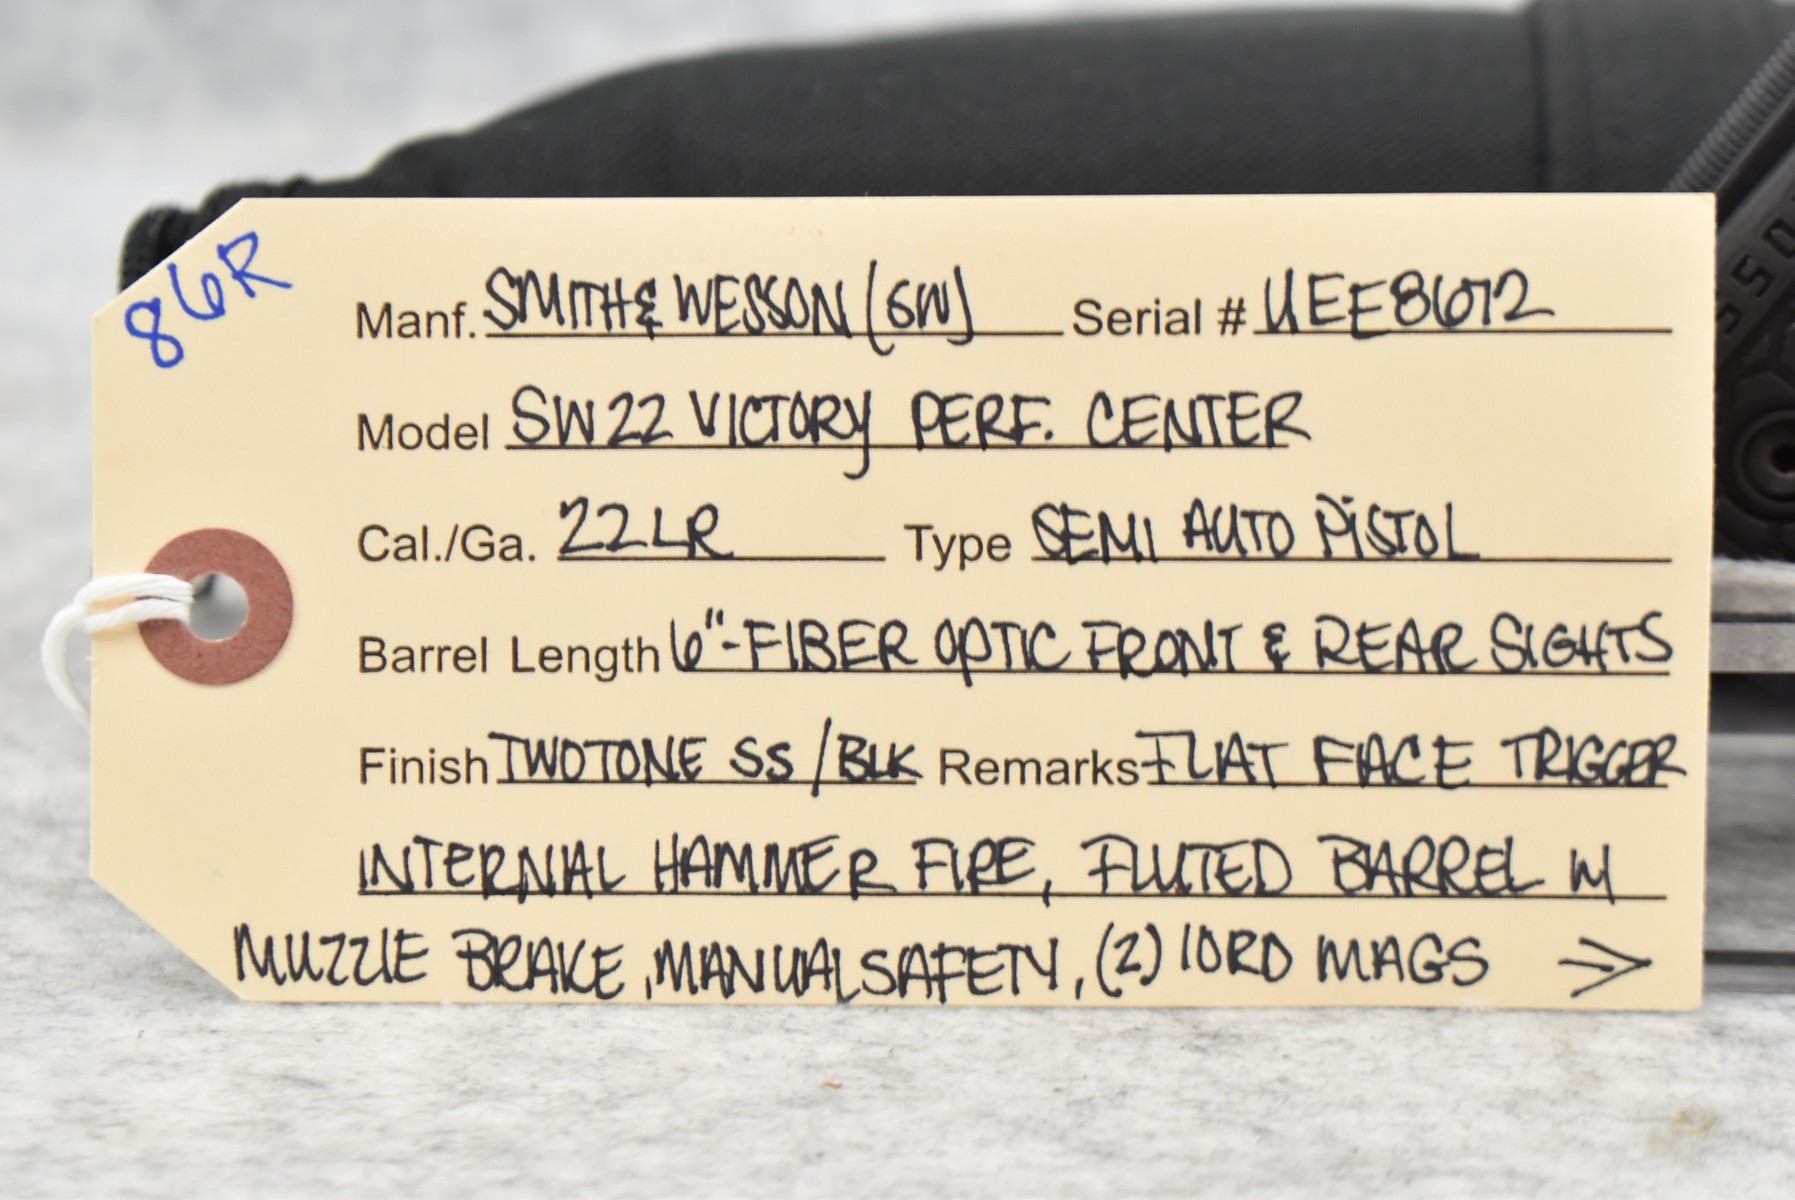 86R
Manf. SMITH & WESSON (SW) Serial # UEE8672
Model SW22 VICTORY PERF. CENTER
Cal./Ga. 22LR Type SEMI AUTO PISTOL
Barrel Length 6"-FIBER OPTIC FRONT & REAR SIGHTS
Finish TWOTONE SS/BLK Remarks FLAT FACE TRIGGER
INTERNAL HAMMER FIRE, FLUTED BARREL W/
MUZZLE BRAKE, MANUAL SAFETY, (2) 10RD MAGS →